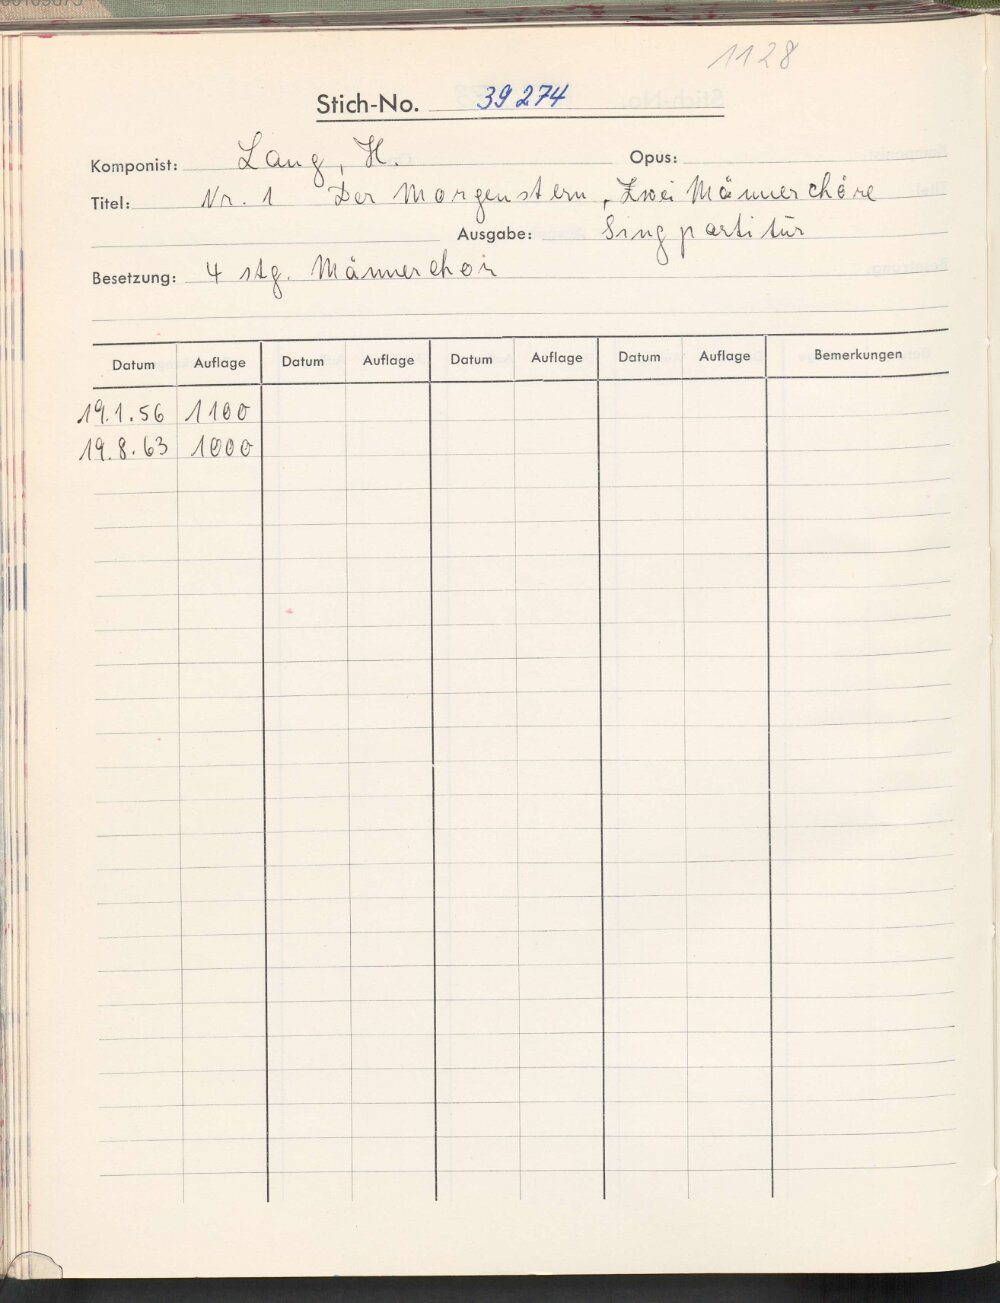 1128
Stich-No. 39 274
Komponist: Lang, H. Opus:
Titel: Nr. 1 Der Morgenstern, Zwei Männerchöre
Ausgabe: Singpartitur
Besetzung: 4 stg. Männerchor
Datum Auflage Datum Auflage Datum Auflage Datum Auflage Bemerkungen
19.1.56 1100
19.8.63 1000